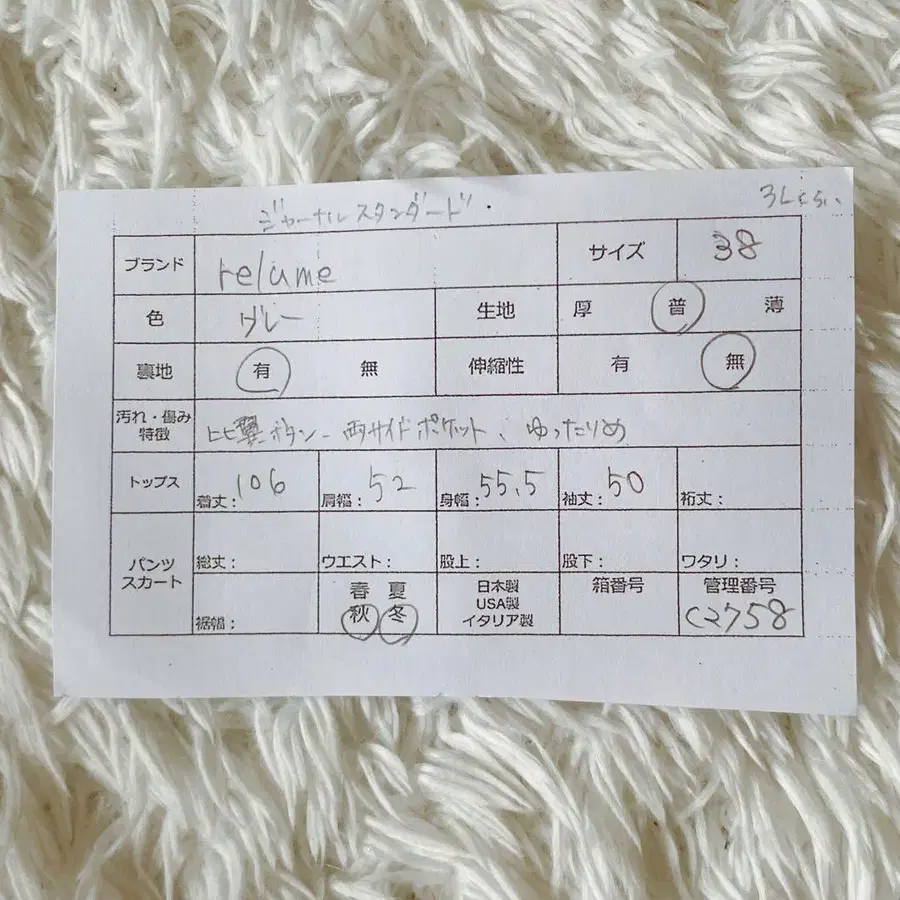 ジャーナルスタンダード
3Lくらい
ブランド relume サイズ 38
色 グレー 生地 厚 普 薄
裏地 有 無 伸縮性 有 無
汚れ・傷み
特徴 比翼ボタン 両サイドポケット、ゆったりめ
トップス 着丈: 106 肩幅: 52 身幅: 55.5 袖丈: 50 裄丈:
パンツ
スカート 総丈: ウエスト: 股上: 股下: ワタリ:
裾幅: 春 夏
秋 冬 日本製
USA製
イタリア製 箱番号 管理番号
C2758